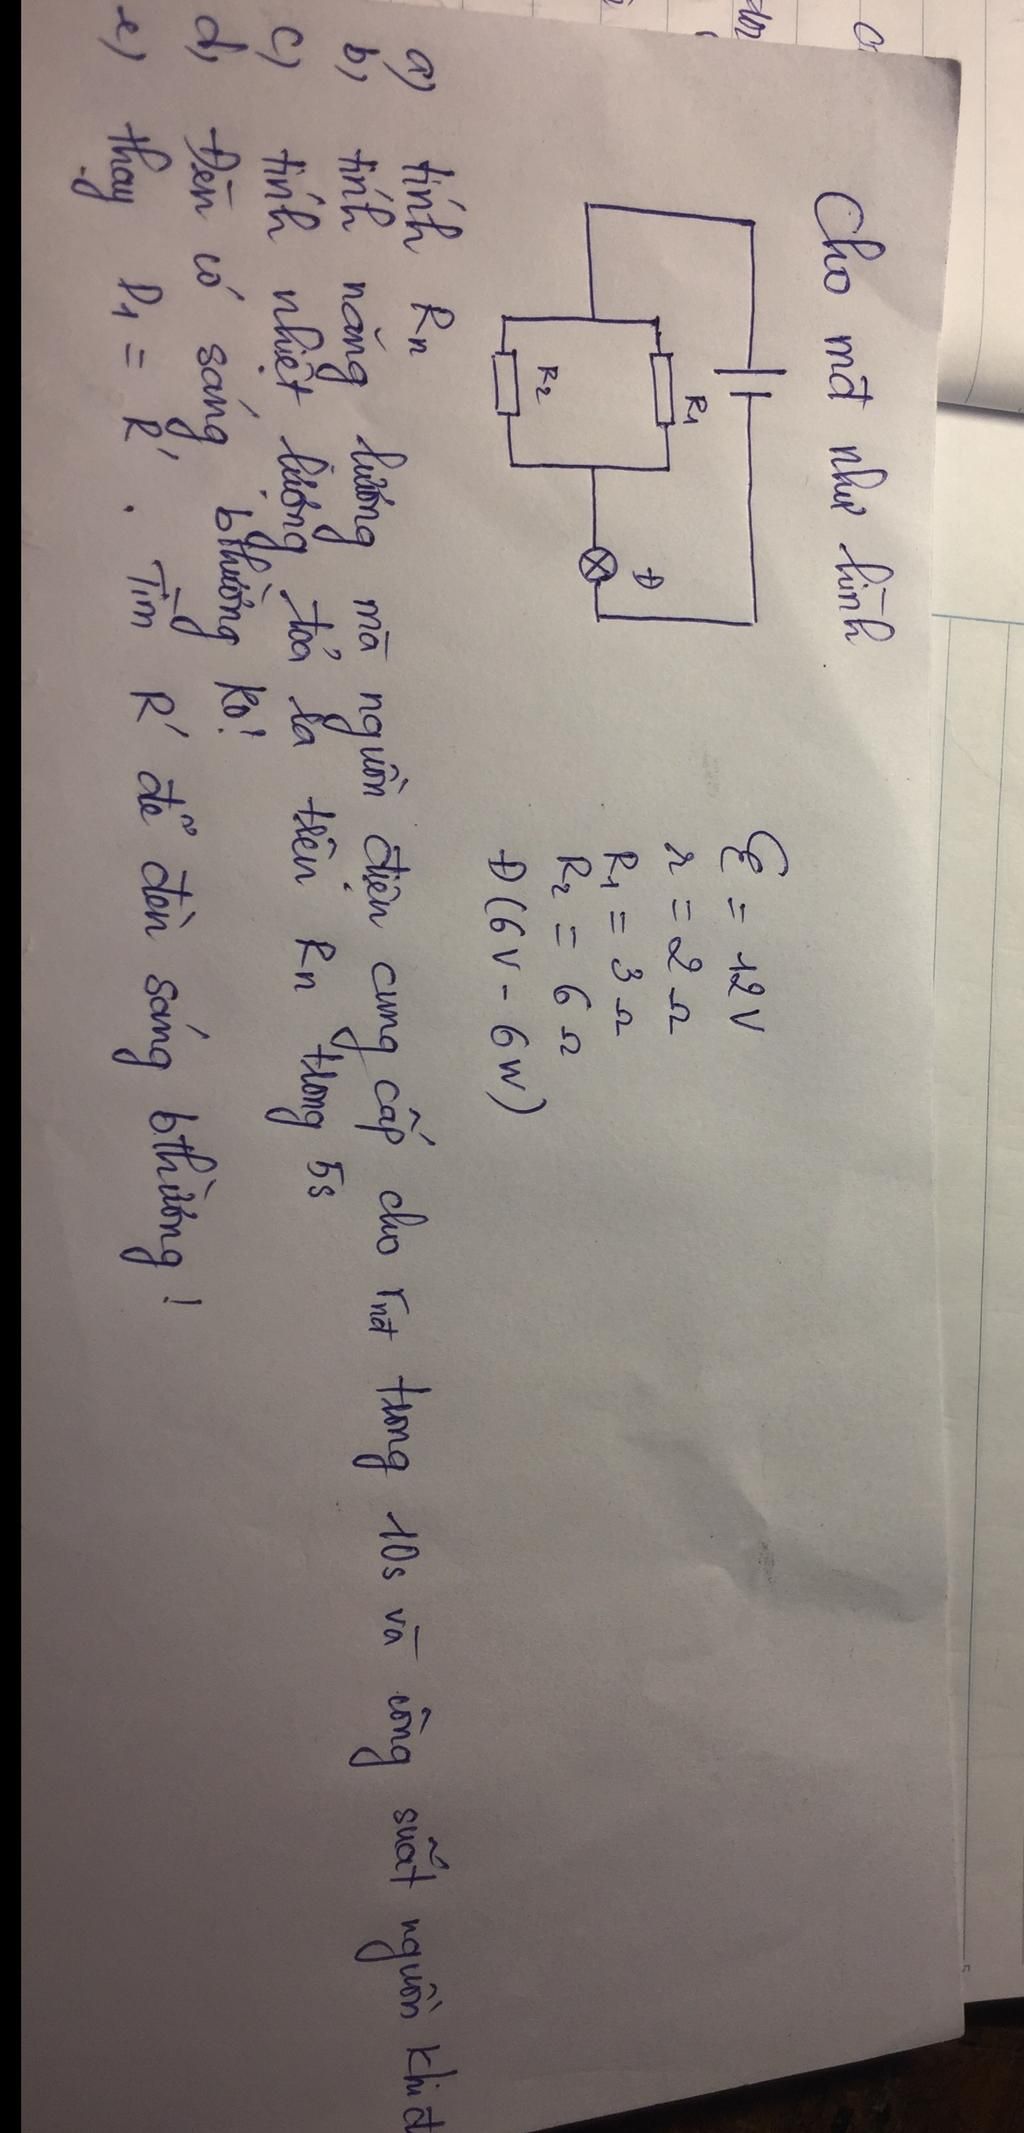 Cho mđ như hình
R1
R2
Đ
ℰ = 12V
r = 2Ω
R1 = 3Ω
R2 = 6Ω
Đ(6V - 6W)
a) tính Rn
b, tính năng lượng mà nguồn điện cung cấp cho rnđ trong 10s và công suất nguồn khi đ
c, tính nhiệt lượng tỏa ra trên Rn trong 5s
d, Đèn có sáng bthường ko!
e) thay R1 = R'. Tìm R' để đèn sáng bthường!